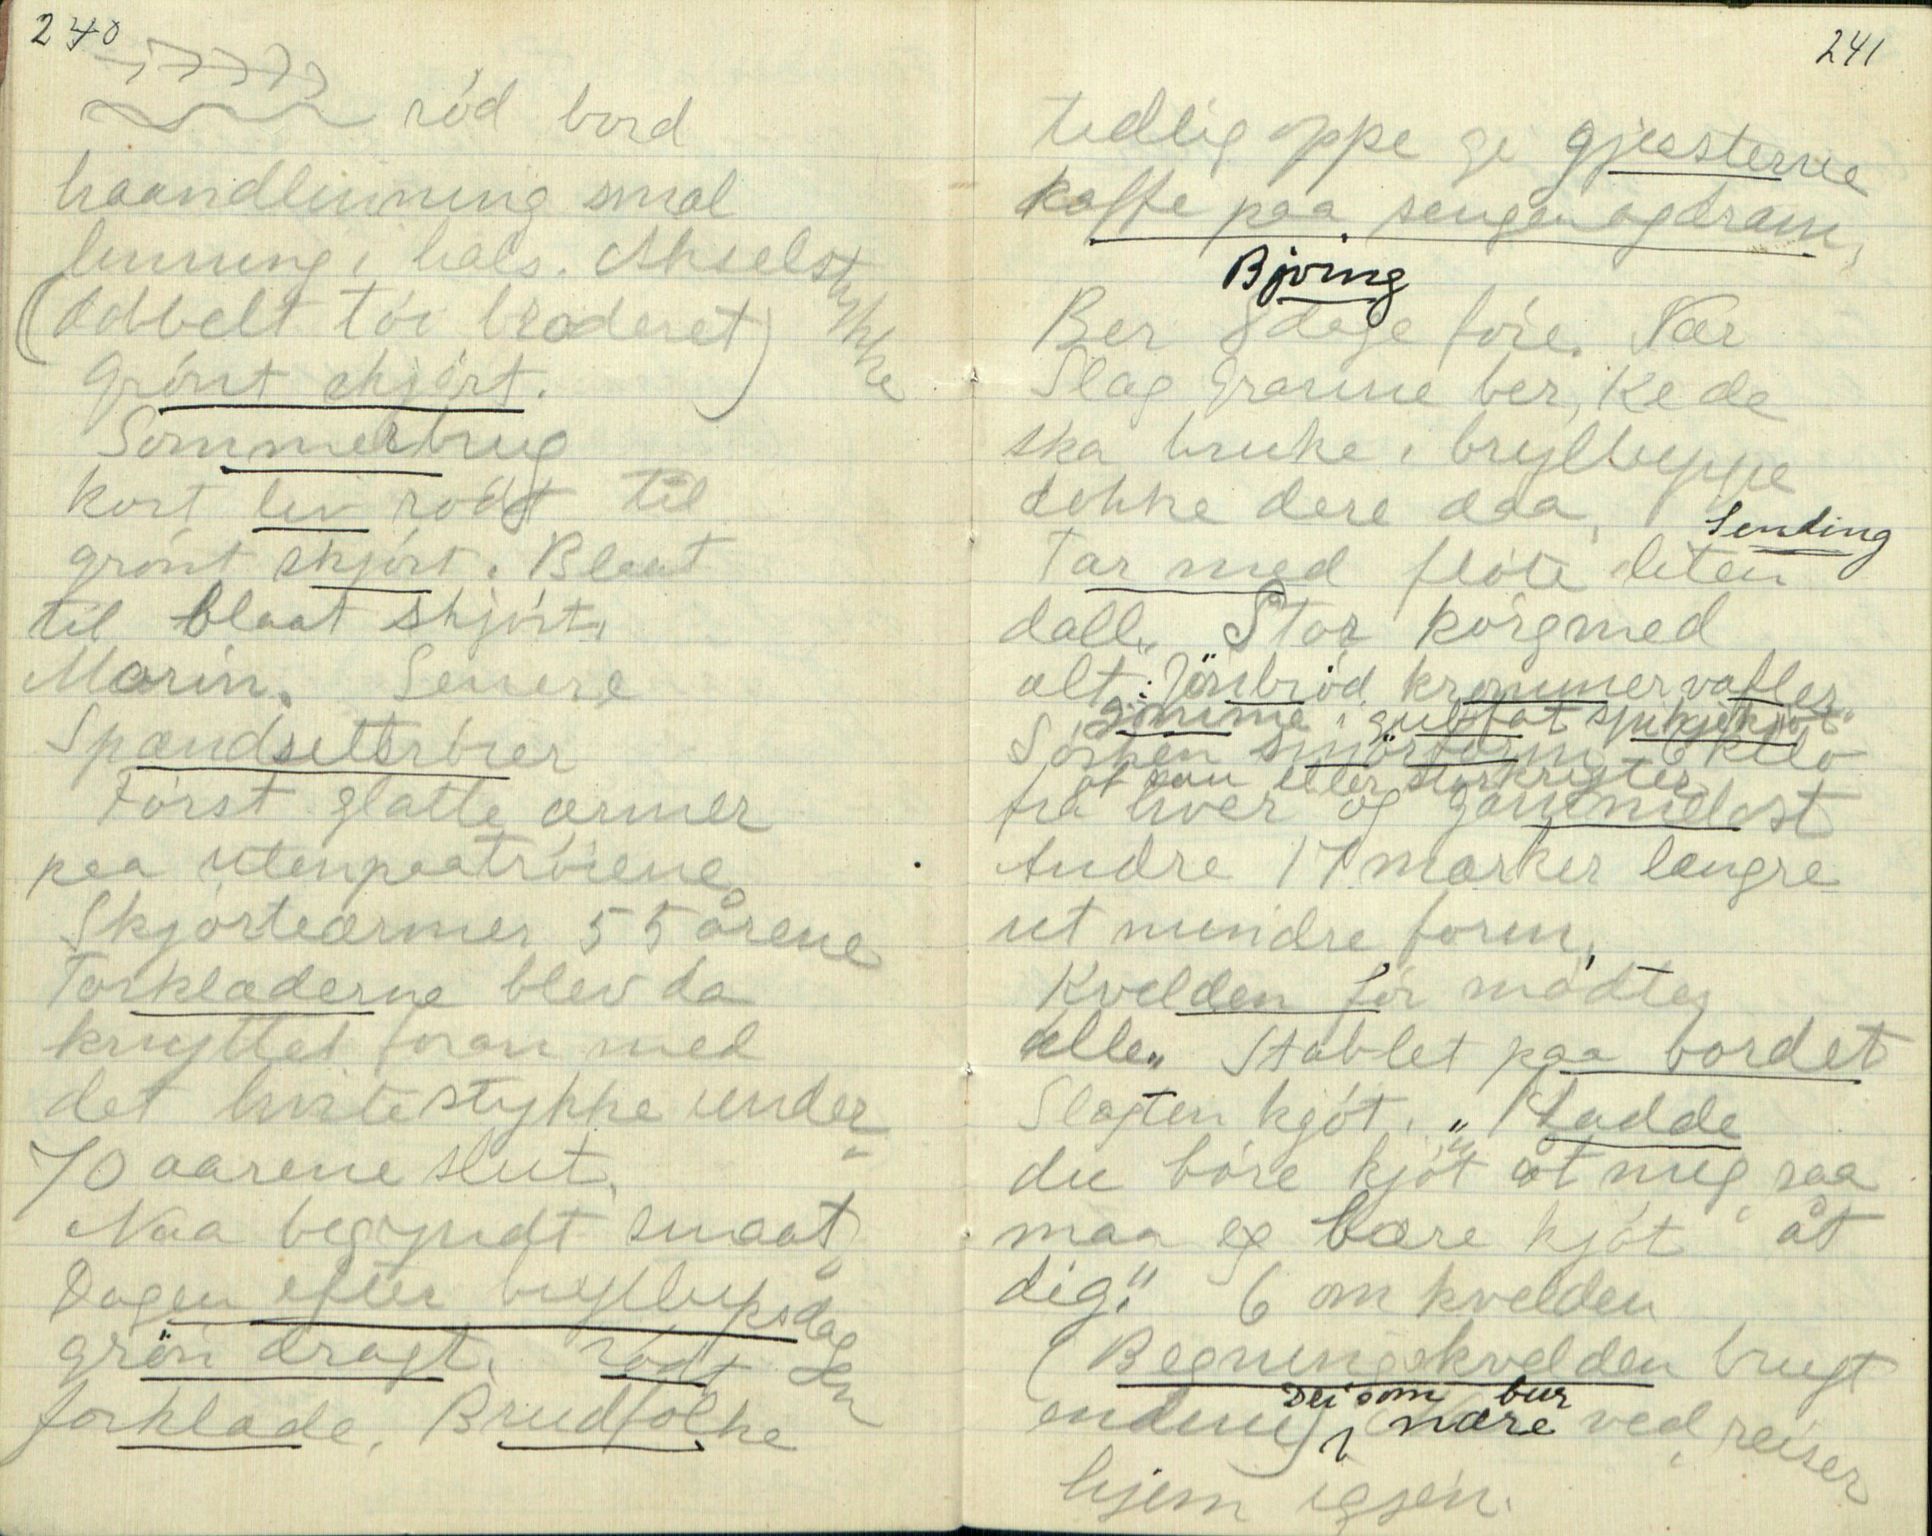 240
rød bord
haandlinning smal
linning i hals. Akselstykke
(dobbelt tøi broderet)
Grønt skjørt.
Sommerbrug
kort liv rødt til
grønt skjørt. Blaat
til blaat skjørt.
Marin. Senere
Spændsettrøier
Først glatte ærmer
paa utenpaatrøiene
Skjorteærmer 55 årene
Torklæderne blev da
knyttet foran med
det hvite stykke under
70 aarene slut.
Naa begyndt smaat
Dagen efter bryllupsdagen
grön dragt. rødt
forklæde. Brudfolke
241
tidlig oppe gi gjesterne
kaffe paa sengen og dram,
Bjoing
Ber 8 dage føre. Nær
Slag granne ber, Ke de
ska bruke i brylluppe
dokke dere daa,
Sending
Tar med fløte liten
dall. Stor kørg med
alt. Jönbrød krommer vafler
gömme i gubfat
Søsken smörform 6 kilo
åt sau eller storkrigter
fra hver og gammelost
Andre 17 marker længre
ut mindre form,
Kvelden før mødtes
alle. Stablet paa bordet
Slagten kjøt. "Ladde
du børe kjøt åt mig saa
maa eg bære kjøt åt
dig." 6 om kvelden
(Begningskvelden brugt
endnu)
Dei som bur
nære ved, reiser
hjem igjen.